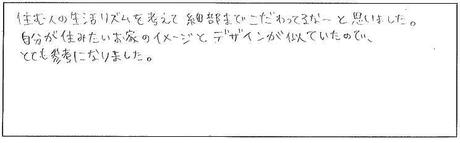 住む人の生活リズムを考えて細部までこだわってるな〜と思いました。
自分が住みたいお家のイメージとデザインが似ていたので、
とても参考になりました。